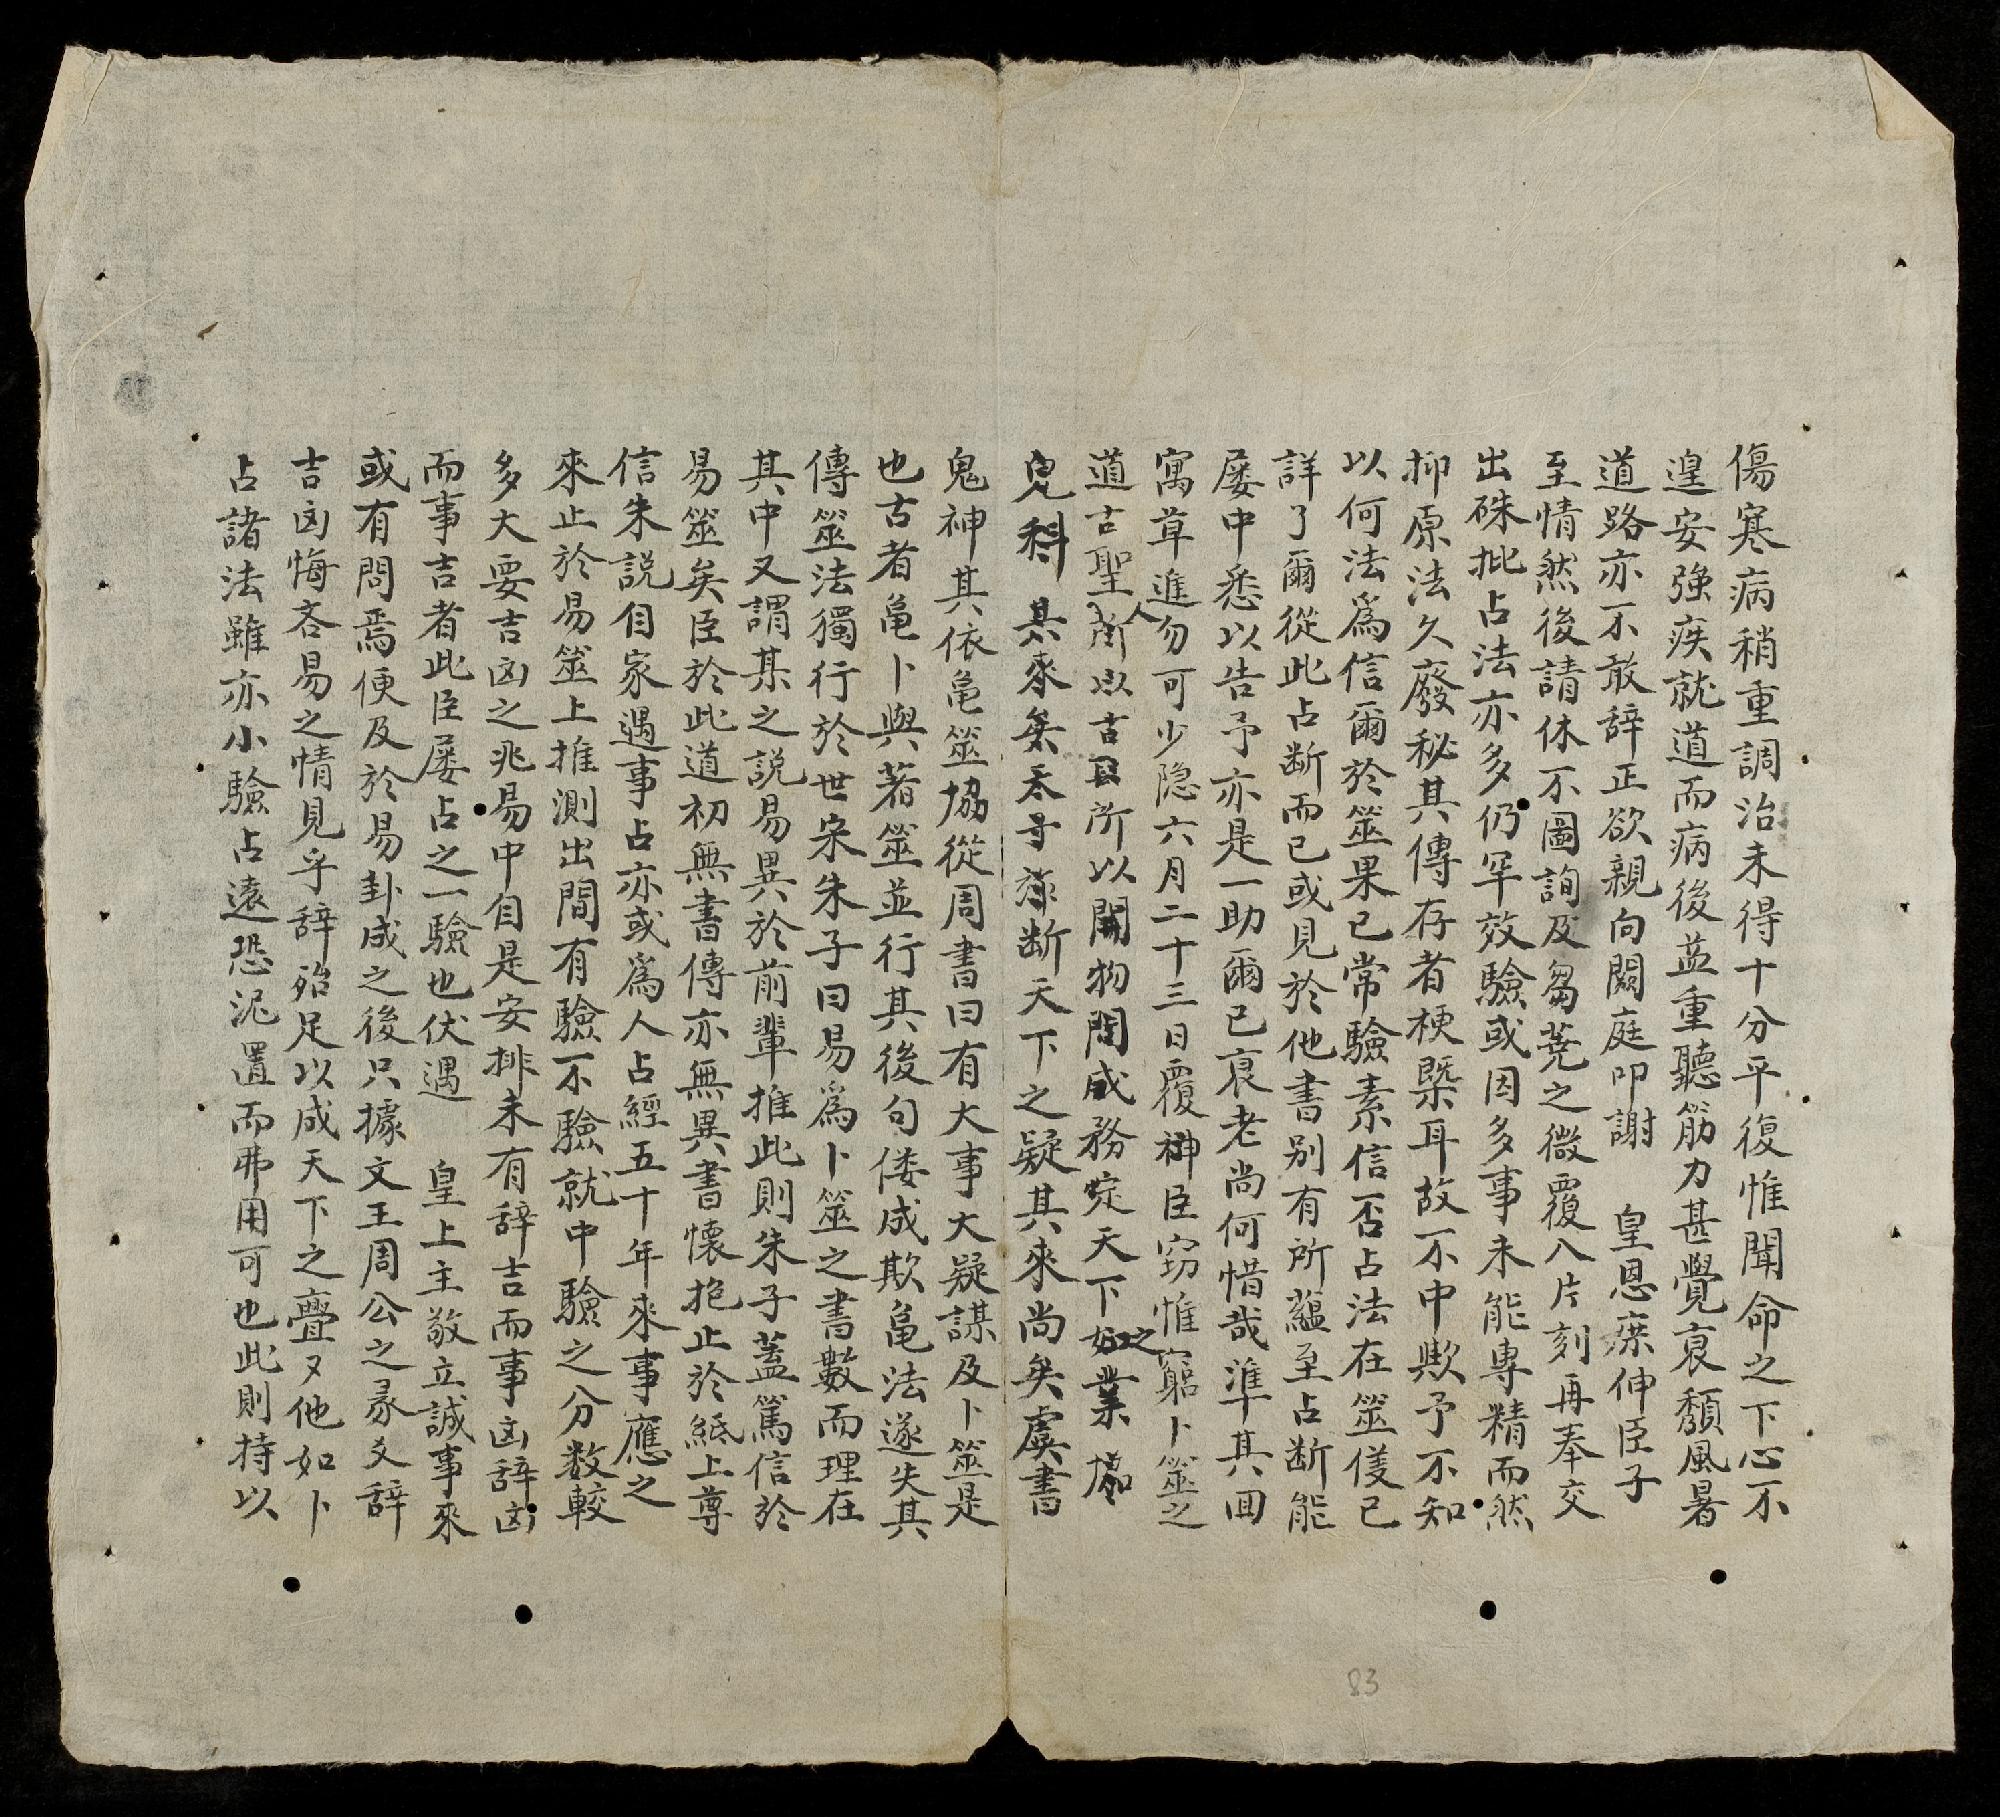 傷寒病稍重調治未得十分平復惟聞命之下心不
遑安強疾就道而病後益重聽筋力甚覺衰頹風暑
道路亦不敢辞正欲親向闕庭叩謝 皇恩庶伸臣子
至情然後請休不圖詢及蒭蕘之微覆八片刻再奉交
出硃批占法亦多仍罕效驗或因多事未能專精而然
抑原法久廢秘其傳存者梗槩耳故不中歟予不知
以何法爲信爾於筮果已常驗素信否占法在筮僅已
詳了爾從此占断而已或見於他書别有所蘊至占断能
屢中悉以告予亦是一助爾已衰老尚何惜哉準其回
寓草進勿可少隐六月二十三日覆神臣窃惟窮卜筮之
道古聖人所以古所以開物成務定天下之業
断天下之疑其来尚矣虞書
鬼神其依亀筮協從周書曰有大事大疑謀及卜筮是
也古者亀卜與蓍筮並行其後句倭成欺亀法遂失其
傳筮法獨行於世宋朱子曰易爲卜筮之書數而理在
其中又謂某之説易異於前輩推此則朱子蓋篤信於
易筮矣臣於此道初無書傳亦無異書懐抱止於紙上尊
信朱説自家遇事占亦或爲人占經五十年來事應之
來止於易筮上推測出間有驗不驗就中驗之分数較
多大要吉凶之兆易中自是安排未有辞吉而事凶辞凶
而事吉者此臣屡占之一驗也伏遇 皇上主敬立誠事來
或有問焉便及於易卦成之後只據文王周公之彖爻辞
吉凶悔吝易之情見乎辞殆足以成天下之亹又他如卜
占諸法雖亦小驗占遠恐泥置而弗用可也此則持以
83